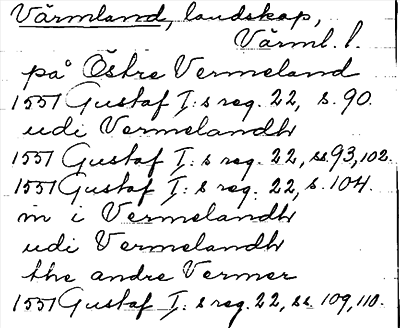 Värmland, landskap,
Värml. l.
på Östre Vermeland
1551 Gustaf I:s reg. 22, s. 90.
udi Vermelandh
1551 Gustaf I:s reg. 22, ss. 93, 102.
1551 Gustaf I:s reg. 22, s. 104.
in i Vermelandh
udi Vermelandh
the andre Vermer
1551 Gustaf I:s reg. 22, ss. 109, 110.